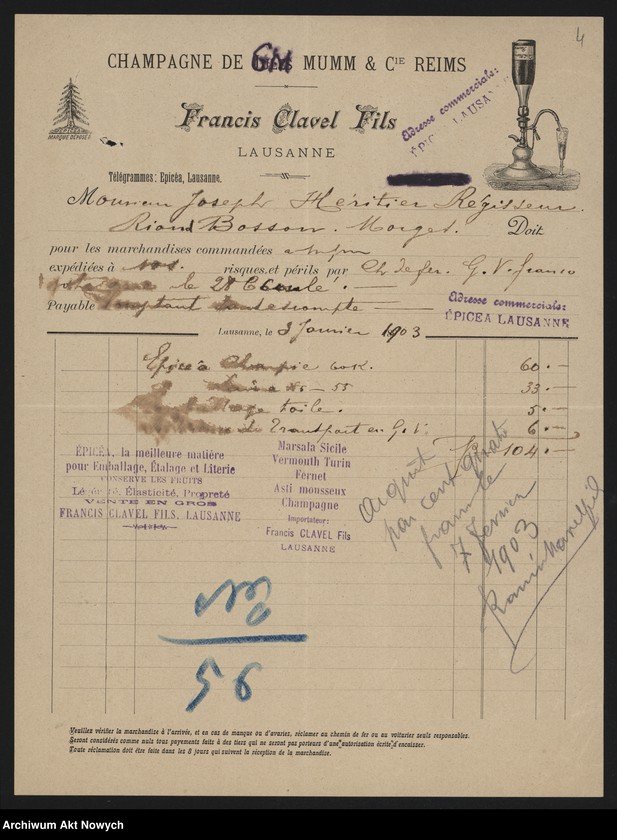 4
CHAMPAGNE DE GM MUMM & CIE REIMS
MARQUE DÉPOSÉE
Francis Clavel Fils
Adresse commerciale:
ÉPICEA LAUSANNE
LAUSANNE
Télégrammes: Epicéa, Lausanne.
Monsieur Joseph Héritier Régisseur.
Riond Bosson. Morges. Doit
pour les marchandises commandées
expédiées à vos risques et périls par Ch de fer. G. V. franco
le 28 Écoulé
Payable comptant sans escompte
Adresse commerciale:
ÉPICEA LAUSANNE
Lausanne, le 3 Janvier 1903
Epicéa 60 K. 60.—
55 33.—
toile. 5.—
de Transport en G. V. 6.—
Fr. 104.—
ÉPICÉA, la meilleure matière
pour Emballage, Étalage et Literie
CONSERVE LES FRUITS
Légèreté, Élasticité, Propreté
VENTE EN GROS
FRANCIS CLAVEL FILS, LAUSANNE
Marsala Sicile
Vermouth Turin
Fernet
Asti mousseux
Champagne
Importateur:
Francis CLAVEL Fils
LAUSANNE
acquit
par cent quatr
francs le
7 fevrier
1903
56
Veuillez vérifier la marchandise à l'arrivée, et en cas de manque ou d'avaries, réclamer au chemin de fer ou au voiturier seuls responsables.
Seront considérés comme nuls tous payements faits à des tiers qui ne seront pas porteurs d'une autorisation écrite d'encaisser.
Toute réclamation doit être faite dans les 8 jours qui suivent la réception de la marchandise.
Archiwum Akt Nowych